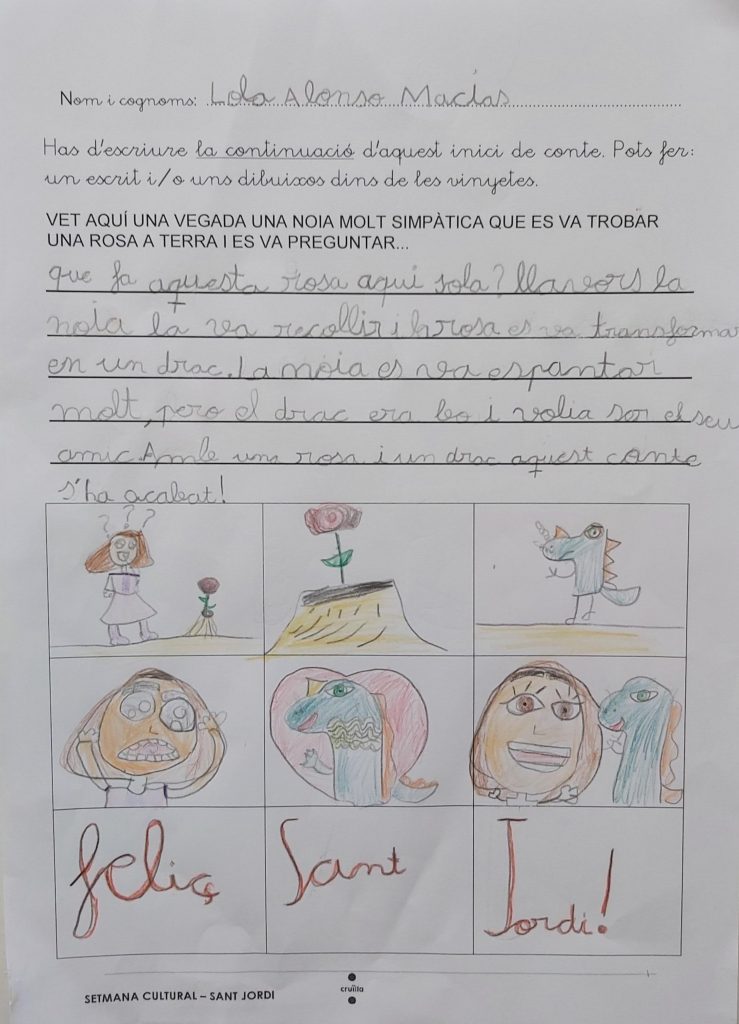 Nom i cognoms: Lola Alonso Macias
Has d'escriure la continuació d'aquest inici de conte. Pots fer:
un escrit i/o uns dibuixos dins de les vinyetes.
VET AQUÍ UNA VEGADA UNA NOIA MOLT SIMPÀTICA QUE ES VA TROBAR
UNA ROSA A TERRA I ES VA PREGUNTAR...
que fa aquesta rosa aquí sola? llavors la
noia la va recollir i la rosa es va transformar
en un drac. La noia es va espantar
molt, pero el drac era bo i volia ser el seu
amic. Amb una rosa i un drac aquest conte
s'ha acabat!
? ? ?
feliç Sant Jordi!
SETMANA CULTURAL – SANT JORDI
cruïlla